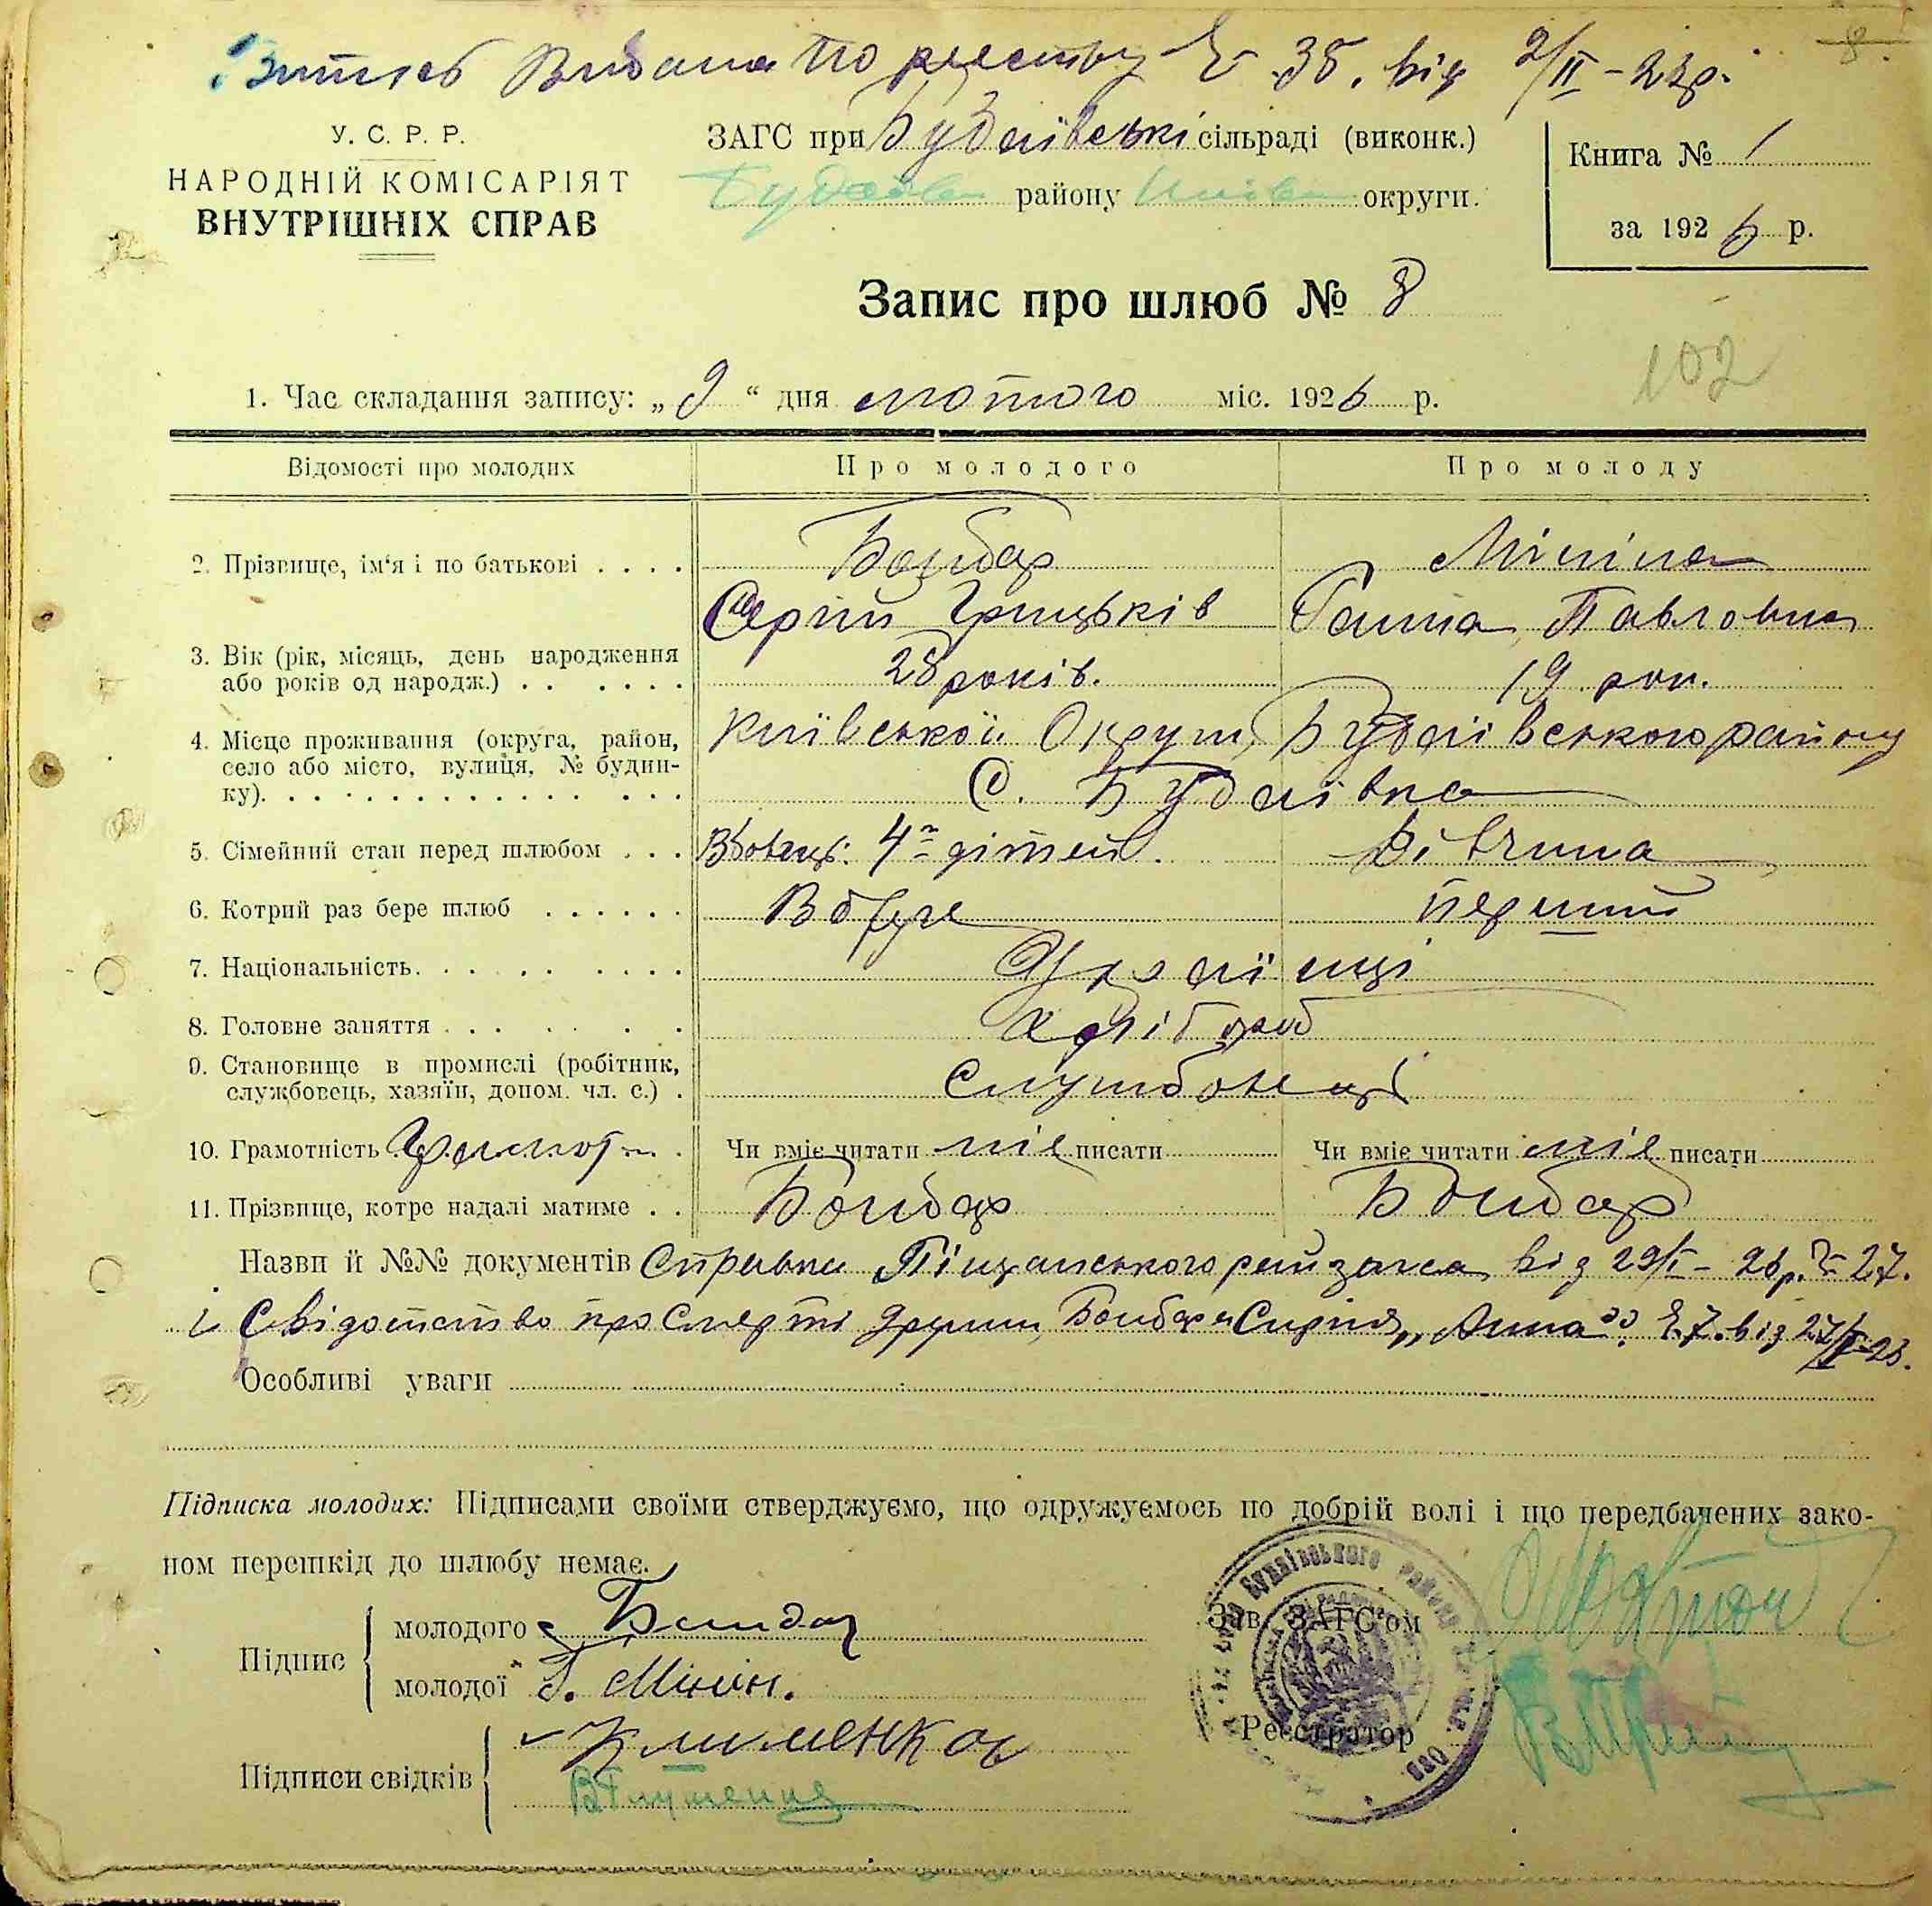 Витяг Видана по реєстру № 35. від 2/II-22р.
8.
У. С. Р. Р.
НАРОДНІЙ КОМІСАРІЯТ
ВНУТРІШНІХ СПРАВ
ЗАГС при Будаївські сільраді (виконк.)
Будаїв району Київ округи.
Книга № 1
за 1926 р.
Запис про шлюб № 8
102
1. Час складання запису: „9“ дня лютого міс. 1926 р.
Відомості про молодих Про молодого Про молоду
2. Прізвище, ім'я і по батькові . . . . Бондар Мініна
Сергій Грицьків Ганна Павловна
3. Вік (рік, місяць, день народження
або років од народж.) . . . . . . 28 років. 19 рок.
4. Місце проживання (округа, район, Київської Округи, Будаївського району
село або місто, вулиця, № будин-
ку). . . . . . . . . . . . . . . С. Будаївка
5. Сімейний стан перед шлюбом . . . Вдовець: 4 дітей. Дівчина
6. Котрий раз бере шлюб . . . . . . Вдруге перший
7. Національність. . . . . . . . . . Українці
8. Головне заняття . . . . . . хлібороб
9. Становище в промислі (робітник,
службовець, хазяїн, допом. чл. с.) . Службовці
10. Грамотність Грамотн. . Чи вміє читати міє писати Чи вміє читати міє писати
11. Прізвище, котре надалі матиме . . Бондар Бондар
Назви й №№ документів Справка Піщанського райзагса від 29/I-26р. № 27.
і Свідотство про Смерть дружини Бондаря Сергія „Анна“. №7. від 27/ -23.
Особливі уваги
Підписка молодих: Підписами своїми стверджуємо, що одружуємось по добрій волі і що передбачених зако-
ном перешкід до шлюбу немає.
Підпис
молодого Бондар
молодої Г. Мінін.
Підписи свідків
Клименков
В Глущенко
Зав. ЗАГС'ом
Реєстратор
Будаївського району